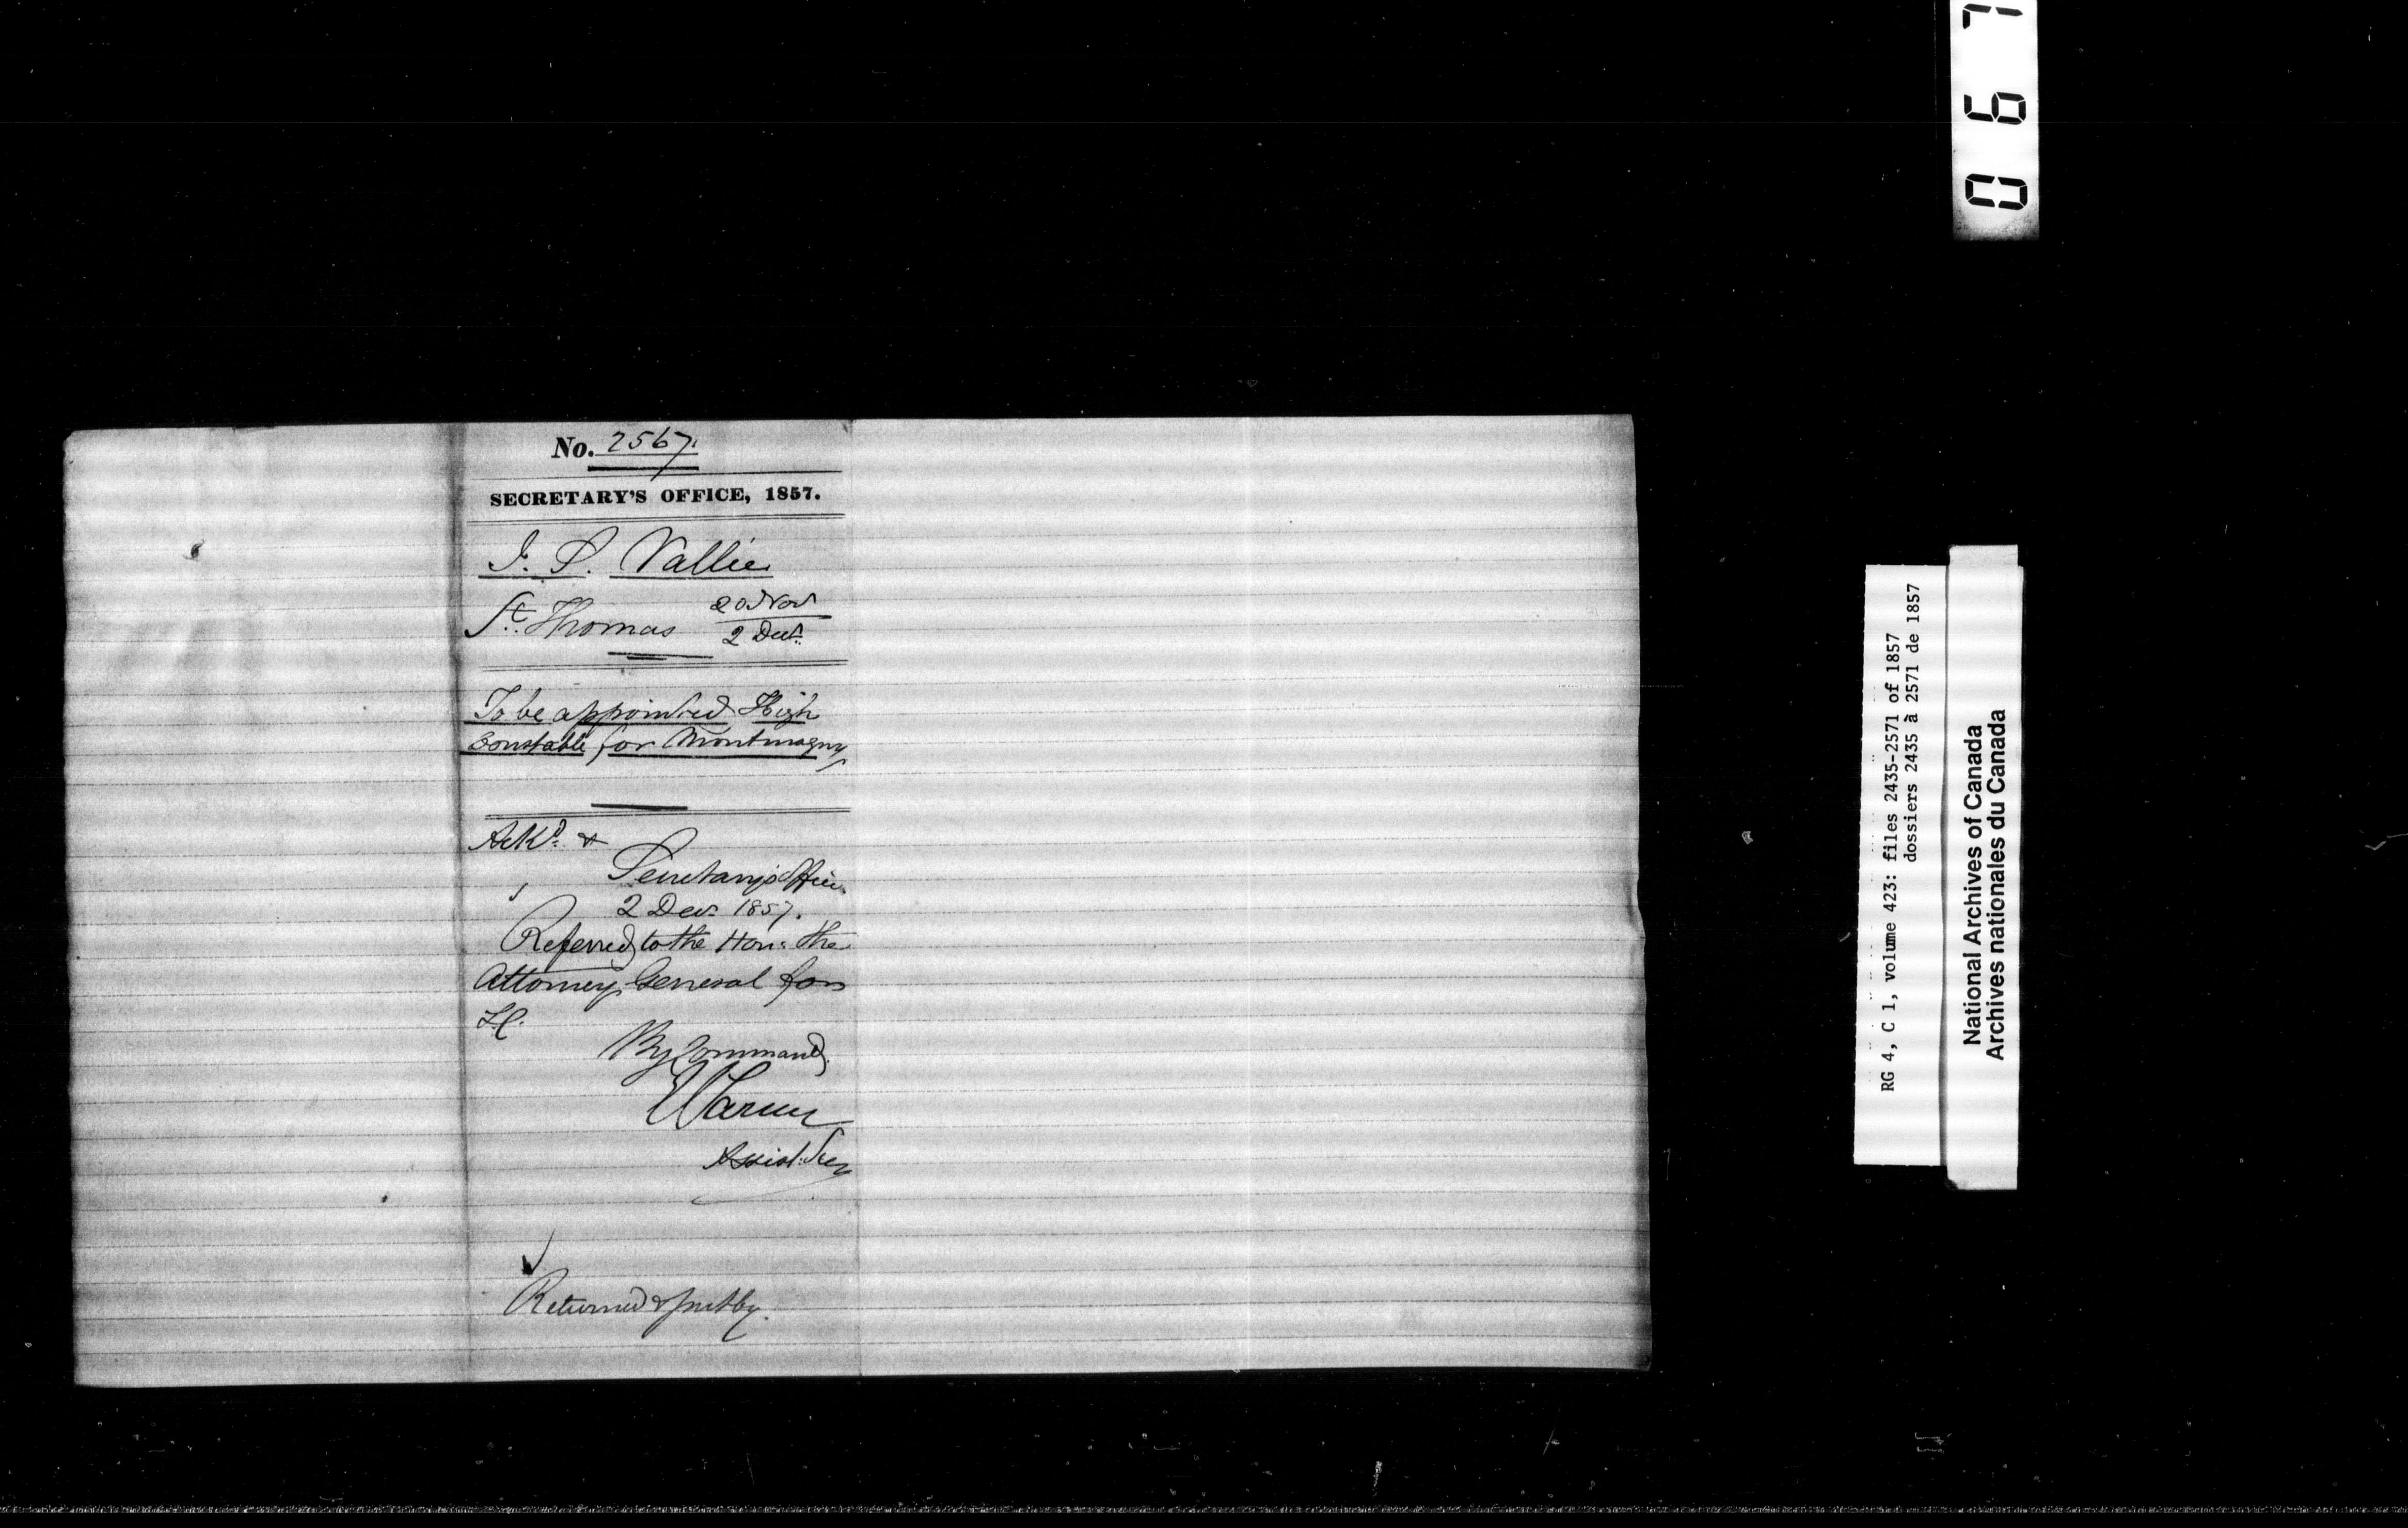 No. 2567.
SECRETARY'S OFFICE, 1857.
J. S. Vallée
St. Thomas 20 Nov
2 Dec.
To be appointed High
Constable for Montmagny
Ackd. &
Secretary's Office
2 Dec. 1857.
Referred to the Hon. the
Attorney General for
L.C.
By Command
Assist. Secy
Returned & put by.
067
RG 4, C 1, volume 423: files 2435-2571 of 1857
dossiers 2435 à 2571 de 1857
National Archives of Canada
Archives nationales du Canada